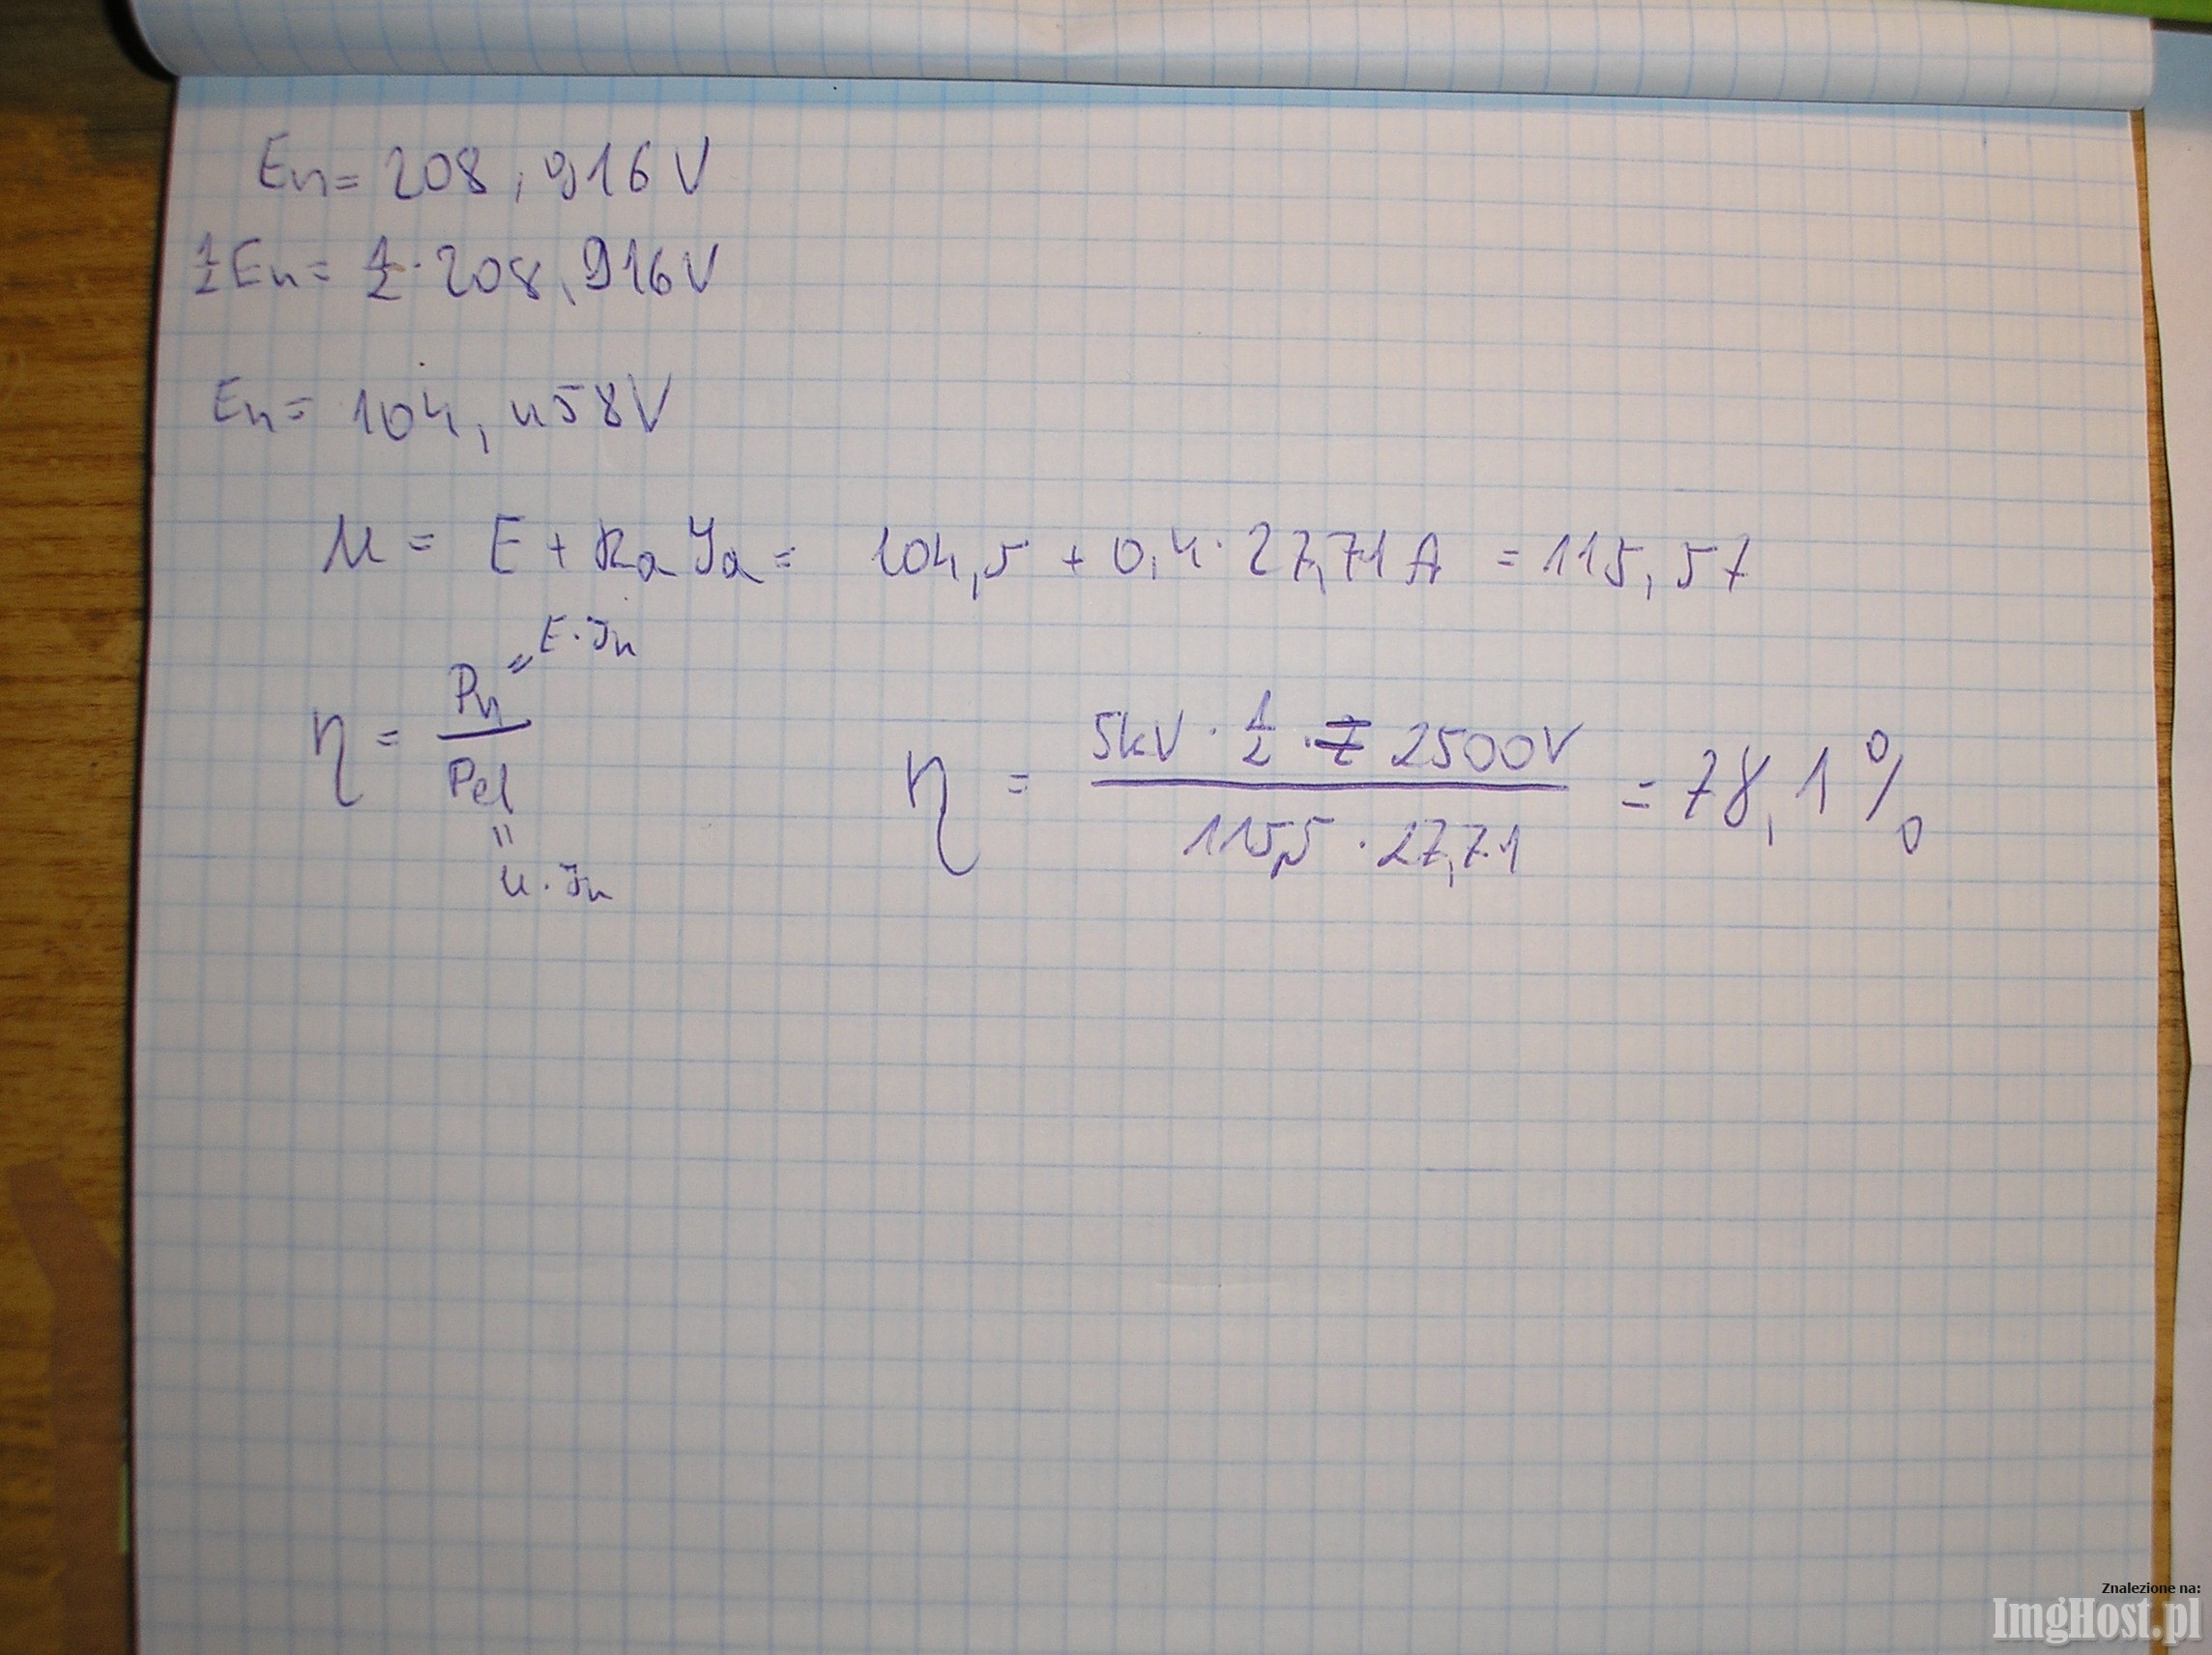 En= 208,916V
1/2 En= 1/2 · 208,916V
En= 104,458V
U = E + Ra Ia = 104,5 + 0,4 · 27,71A = 115,57
η = Pn / Pel
= E·In
= U·In
η = 5kV · 1/2 · = 2500V / 115,5 · 27,71 = 78,1%
Znalezione na:
ImgHost.pl